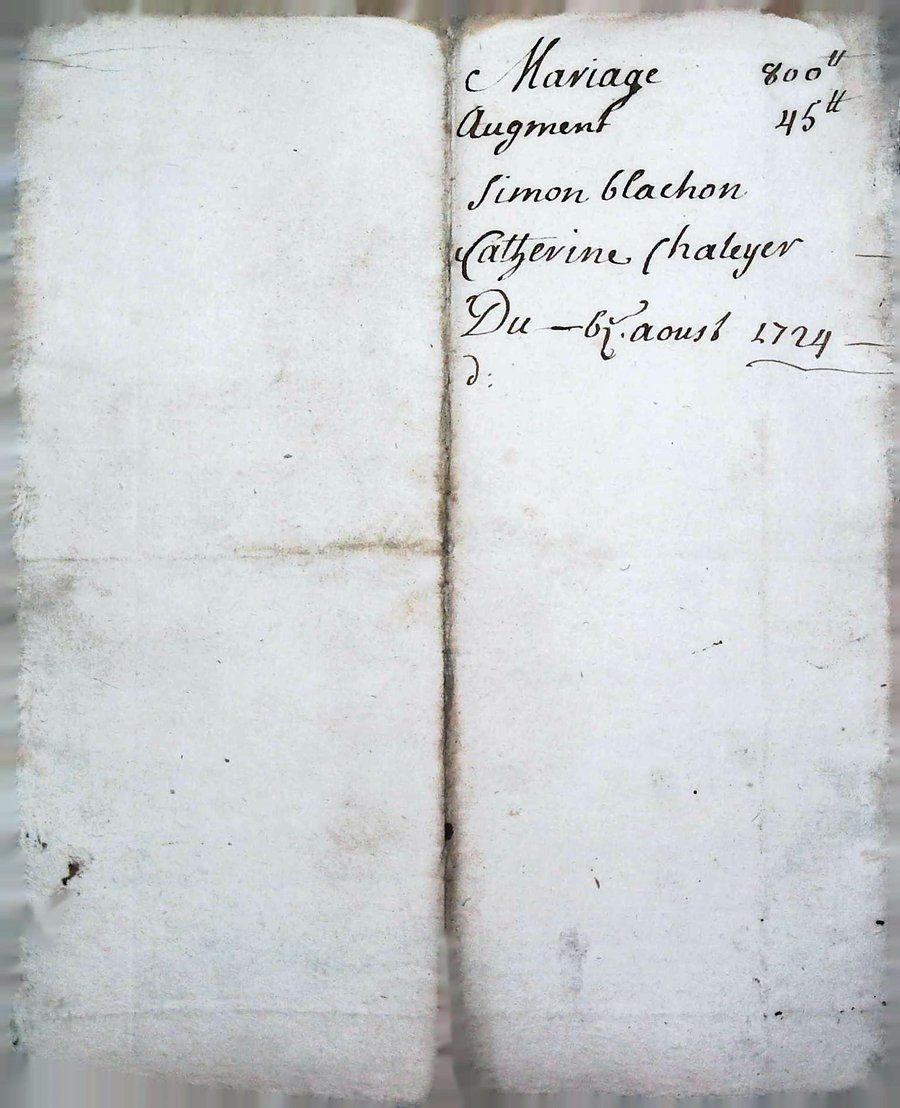 Mariage 800ᵗᵗ
Augment 45ᵗᵗ
Simon blachon
Catherine Chaleyer
Du — aoust 1724
d: